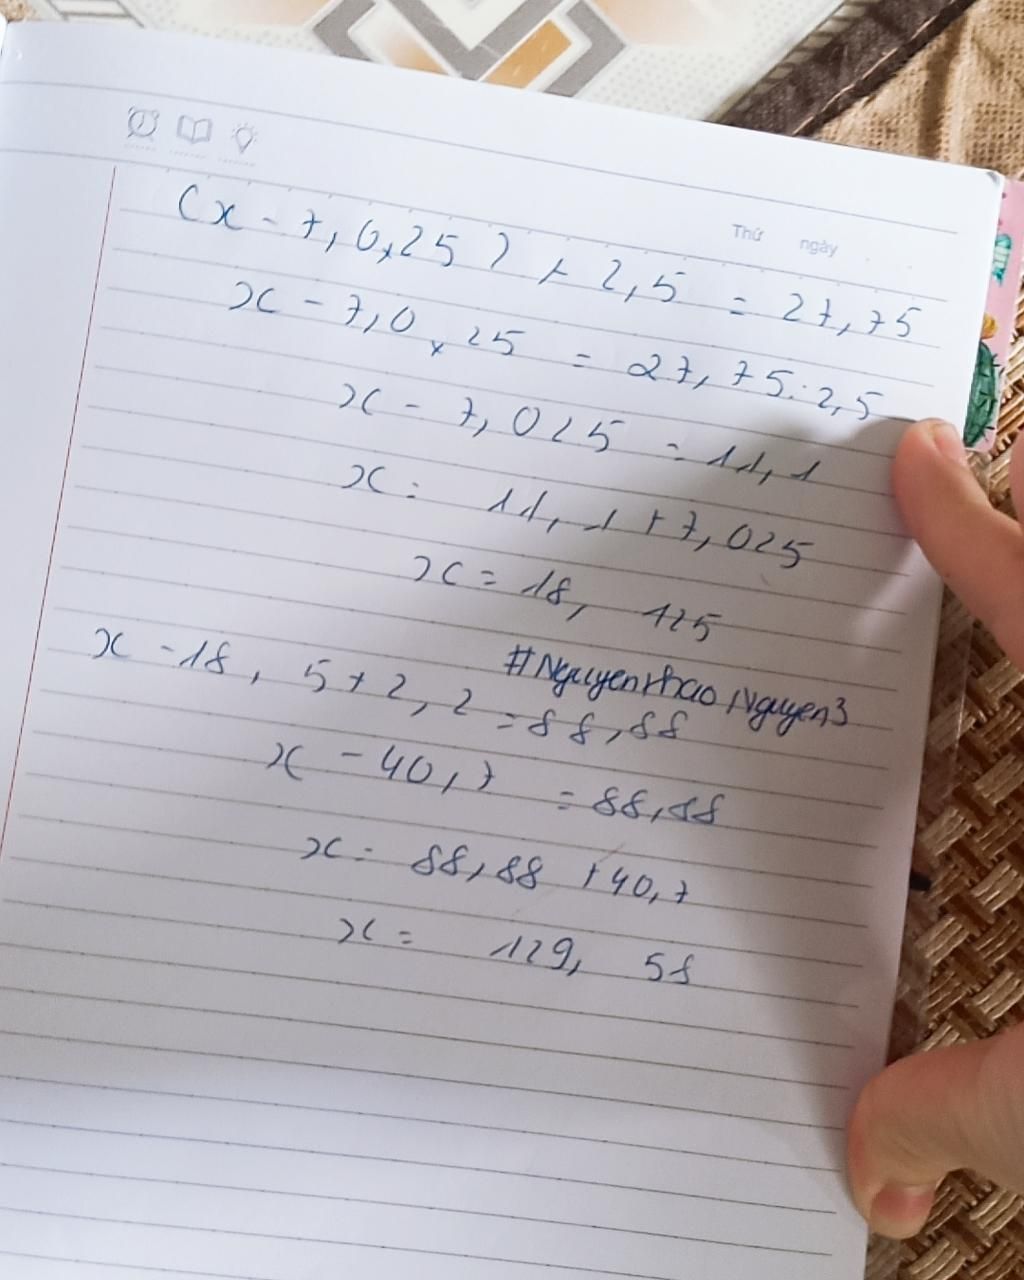 Thứ ngày
(x - 7,0,25) x 2,5 = 27,75
x - 7,0 x 25 = 27,75:2,5
x - 7,025 = 11,1
x = 11,1 + 7,025
x = 18,125
#NguyenthaoNguyen3
x - 18,5 x 2,2 = 88,88
x - 40,7 = 88,88
x = 88,88 + 40,7
x = 129,58